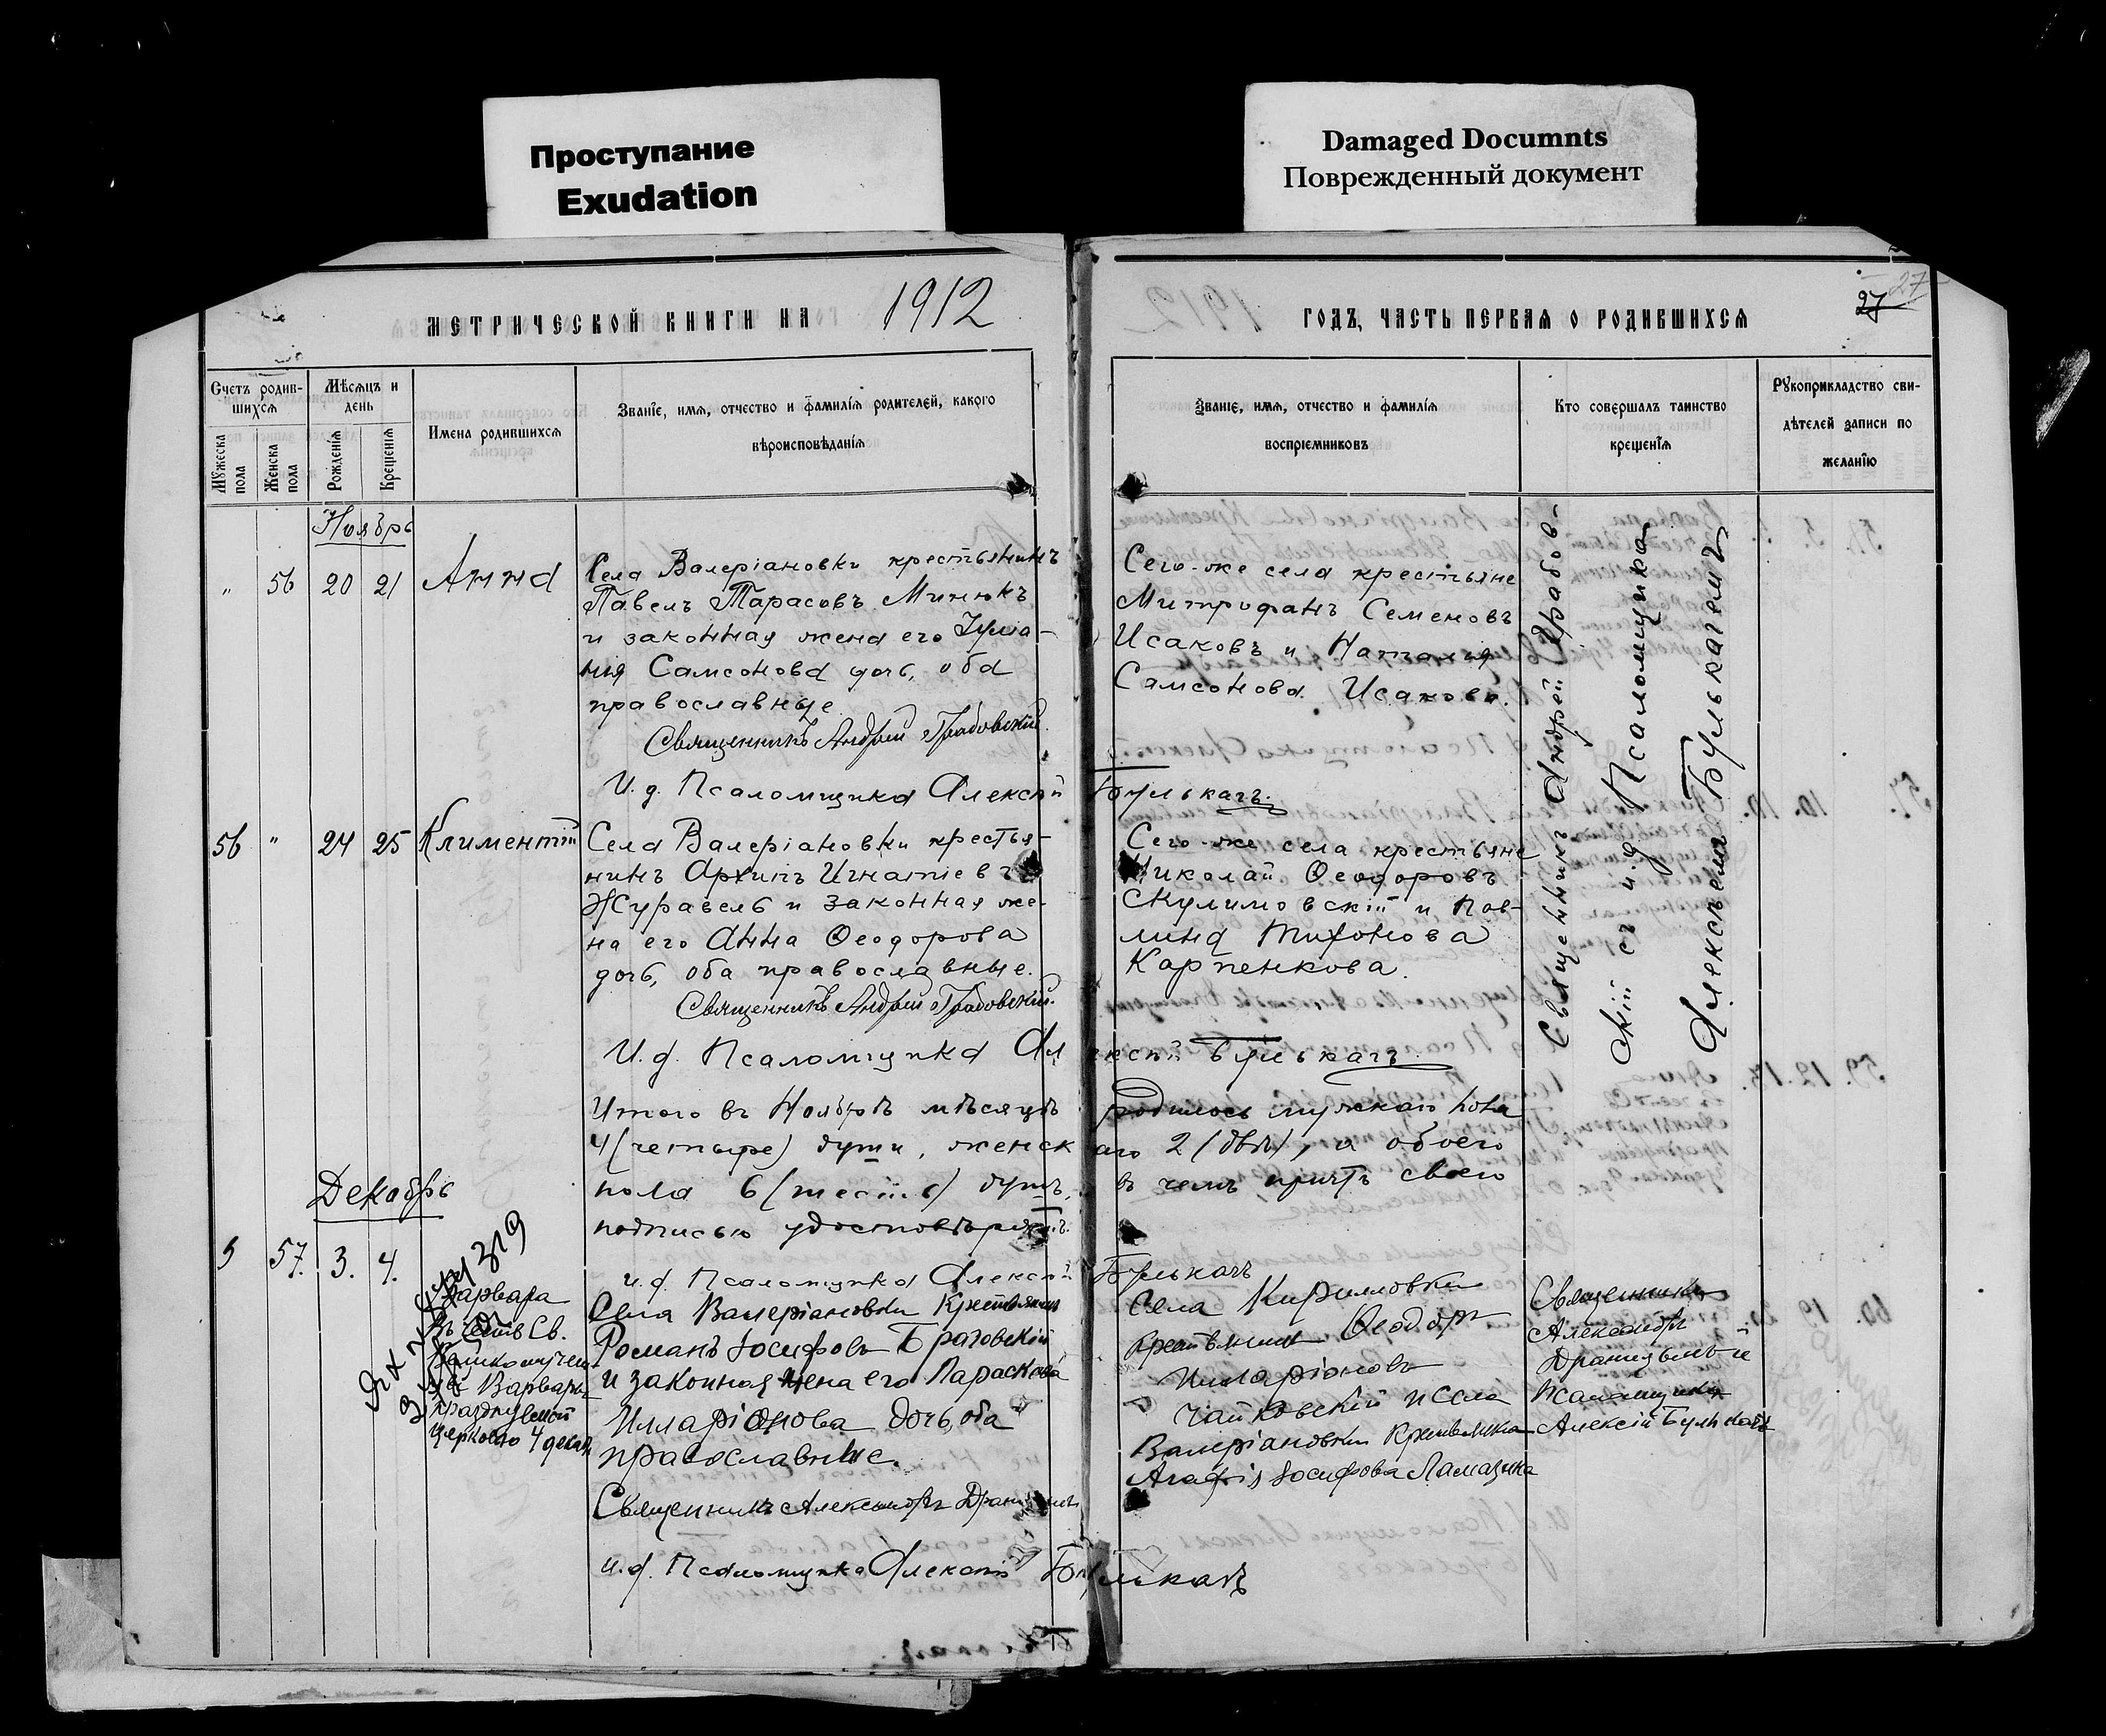 Проступание
Exudation
Damaged Documnts
Поврежденный документ
МЕТРИЧЕСКОЙ КНИГИ НА 1912
ГОДЪ, ЧАСТЬ ПЕРВАЯ О РОДИВШИХСЯ
27
27
Счетъ родив-
шихся
Мѣсяцъ и
день
Мужеска
пола
Женска
пола
Рожденія
Крещенія
Имена родившихся
Званіе, имя, отчество и фамилія родителей, какого
вѣроисповѣданія
Званіе, имя, отчество и фамилія
воспріемниковъ
Кто совершалъ таинство
крещенія
Рукоприкладство сви-
дѣтелей записи по
желанію
Ноябрь
" 56 20 21 Анна
Села Валеріановки крестьянинъ
Павелъ Тарасовъ Минюкъ
и законная жена его Іулiа-
нія Самсонова дочь, оба
православные
Священникъ Андрей Грабовскій
И. д. Псаломщика Алексѣй Булькачъ.
Сего-же села крестьяне
Митрофанъ Семеновъ
Исаковъ и Наталія
Самсонова Исакова.
Священникъ Андрей Грабов-
скій съ и. д. Псаломщика
Алексѣемъ Булькачемъ
56 " 24 25 Климентій
Села Валеріановки крестья-
нинъ Архипъ Игнатіевъ
Журавель и законная же-
на его Анна Ѳеодорова
дочь, оба православные.
Священникъ Андрей Грабовскій.
И. д. Псаломщика Алексѣй Булькачъ.
Сего-же села крестьяне
Николай Ѳеодоровъ
Скулимовскій и Пав-
лина Тихонова
Карпенкова.
Итого въ Ноябрѣ мѣсяцѣ родилось мужскаго пола
4 (четыре) души, женскаго 2 (двѣ), а обоего
пола 6 (шесть) душъ, въ чемъ причтъ своею
подписью удостовѣряетъ.
И. д. Псаломщика Алексѣй Булькачъ
Декабрь
57. 3. 4.
Варвара
въ честь Св.
Великомучени-
цы Варвары
празднуемой
церковью 4 декаб.
Села Валеріановки Крестьянинъ
Романъ Іосифовъ Братовскій
и законная жена его Параскева
Илларіонова дочь, оба
православные.
Священникъ Александръ
И. д. Псаломщика Алексѣй Булькачъ
Села Кирилловки
крестьянинъ Ѳеодоръ
Илларіоновъ
Чайковскій и Села
Валеріановки Крестьянка
Агафія Іосифова
Священникъ
Александръ
Псаломщикъ
Алексій Булькачъ